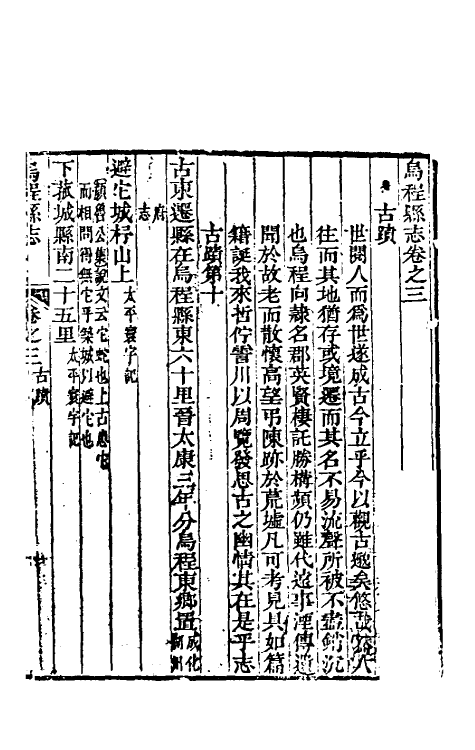 烏程縣志卷之三
古蹟
世閱人而爲世遂成古今立乎今以觀古邈矣悠哉人
往而其地猶存或境遷而其名不易流聲所被不盡銷沉
也烏程向隸名郡英賢棲託勝構頻仍雖代遠事湮傳
聞於故老而散懷高望弔陳跡於荒墟凡可考見具如篇
籍誕我來哲佇霅川以周覽發思古之幽情其在是乎志
古蹟第十
古東遷縣在烏程縣東六十里晉太康三年分烏程東鄉置成化
府志
避它城杼山上太平寰宇記
顏魯公集記文云它蛇也上古患它
而相問得無它乎築城以避它也
下菰城縣南二十五里太平寰宇記
烏程縣志 卷之三 古蹟